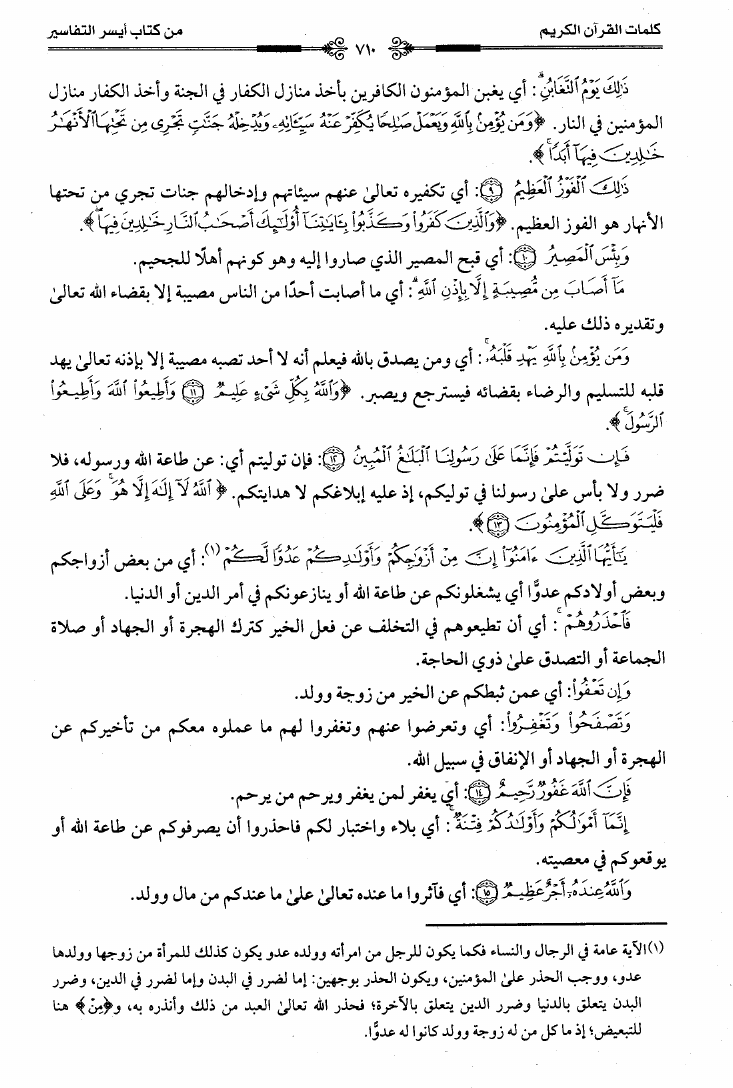 كلمات القرآن الكريم
من كتاب أيسر التفاسير
٧١٠
ذَٰلِكَ يَوْمُ التَّغَابُنِ ۗ: أي يغبن المؤمنون الكافرين بأخذ منازل الكفار في الجنة وأخذ الكفار منازل
المؤمنين في النار. ﴿وَمَن يُؤْمِنۢ بِاللَّهِ وَيَعْمَلْ صَٰلِحًا يُكَفِّرْ عَنْهُ سَيِّـَٔاتِهِۦ وَيُدْخِلْهُ جَنَّٰتٍ تَجْرِى مِن تَحْتِهَا الْأَنْهَٰرُ
خَٰلِدِينَ فِيهَآ أَبَدًا ۚ﴾.
ذَٰلِكَ الْفَوْزُ الْعَظِيمُ ۝٩: أي تكفيره تعالىٰ عنهم سيئاتهم وإدخالهم جنات تجري من تحتها
الأنهار هو الفوز العظيم. ﴿وَالَّذِينَ كَفَرُوا۟ وَكَذَّبُوا۟ بِـَٔايَٰتِنَآ أُو۟لَٰٓئِكَ أَصْحَٰبُ النَّارِ خَٰلِدِينَ فِيهَا ۖ﴾.
وَبِئْسَ الْمَصِيرُ ۝١٠: أي قبح المصير الذي صاروا إليه وهو كونهم أهلًا للجحيم.
مَآ أَصَابَ مِن مُّصِيبَةٍ إِلَّا بِإِذْنِ اللَّهِ ۗ: أي ما أصابت أحدًا من الناس مصيبة إلا بقضاء الله تعالىٰ
وتقديره ذلك عليه.
وَمَن يُؤْمِنۢ بِاللَّهِ يَهْدِ قَلْبَهُۥ ۚ: أي ومن يصدق بالله فيعلم أنه لا أحد تصبه مصيبة إلا بإذنه تعالىٰ يهد
قلبه للتسليم والرضاء بقضائه فيسترجع ويصبر. ﴿وَاللَّهُ بِكُلِّ شَىْءٍ عَلِيمٌ ۝١١ وَأَطِيعُوا۟ اللَّهَ وَأَطِيعُوا۟
الرَّسُولَ ۚ﴾.
فَإِن تَوَلَّيْتُمْ فَإِنَّمَا عَلَىٰ رَسُولِنَا الْبَلَٰغُ الْمُبِينُ ۝١٢: فإن توليتم أي: عن طاعة الله ورسوله، فلا
ضرر ولا بأس علىٰ رسولنا في توليكم، إذ عليه إبلاغكم لا هدايتكم. ﴿اللَّهُ لَآ إِلَٰهَ إِلَّا هُوَ ۚ وَعَلَى اللَّهِ
فَلْيَتَوَكَّلِ الْمُؤْمِنُونَ ۝١٣﴾.
يَٰٓأَيُّهَا الَّذِينَ ءَامَنُوٓا۟ إِنَّ مِنْ أَزْوَٰجِكُمْ وَأَوْلَٰدِكُمْ عَدُوًّا لَّكُمْ (١): أي من بعض أزواجكم
وبعض أولادكم عدوًّا أي يشغلونكم عن طاعة الله أو ينازعونكم في أمر الدين أو الدنيا.
فَاحْذَرُوهُمْ ۚ: أي أن تطيعوهم في التخلف عن فعل الخير كترك الهجرة أو الجهاد أو صلاة
الجماعة أو التصدق علىٰ ذوي الحاجة.
وَإِن تَعْفُوا۟: أي عمن ثبطكم عن الخير من زوجة وولد.
وَتَصْفَحُوا۟ وَتَغْفِرُوا۟: أي وتعرضوا عنهم وتغفروا لهم ما عملوه معكم من تأخيركم عن
الهجرة أو الجهاد أو الإنفاق في سبيل الله.
فَإِنَّ اللَّهَ غَفُورٌ رَّحِيمٌ ۝١٤: أي يغفر لمن يغفر ويرحم من يرحم.
إِنَّمَآ أَمْوَٰلُكُمْ وَأَوْلَٰدُكُمْ فِتْنَةٌ ۚ: أي بلاء واختبار لكم فاحذروا أن يصرفوكم عن طاعة الله أو
يوقعوكم في معصيته.
وَاللَّهُ عِندَهُۥٓ أَجْرٌ عَظِيمٌ ۝١٥: أي فآثروا ما عنده تعالىٰ علىٰ ما عندكم من مال وولد.
(١) الآية عامة في الرجال والنساء فكما يكون للرجل من امرأته وولده عدو يكون كذلك للمرأة من زوجها وولدها
عدو، ووجب الحذر علىٰ المؤمنين، ويكون الحذر بوجهين: إما لضرر في البدن وإما لضرر في الدين، وضرر
البدن يتعلق بالدنيا وضرر الدين يتعلق بالآخرة؛ فحذر الله تعالىٰ العبد من ذلك وأنذره به، و﴿مِنْ﴾ هنا
للتبعيض؛ إذ ما كل من له زوجة وولد كانوا له عدوًّا.